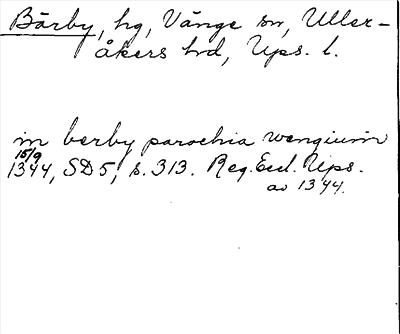 Bärby, hg, Vänge sn, Uller-
åkers hd, Ups. l.
in berby parochia wengium
15/9
1344, SD 5, s. 313. Reg. Eccl. Ups.
av 1344.